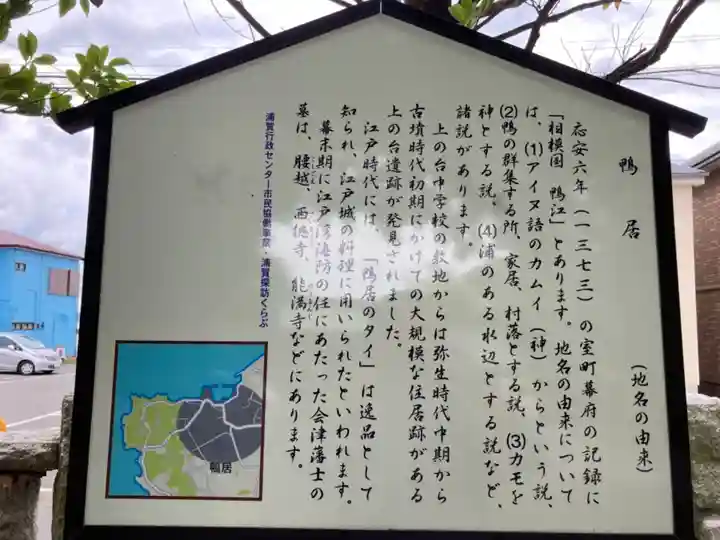 鴨居
(地名の由来)
応安六年(一三七三)の室町幕府の記録に
「相模国 鴨江」とあります。地名の由来について
は、(1)アイヌ語のカムイ(神)からという説、
(2)鴨の群集する所、家居、村落とする説、(3)カモを
神とする説、(4)浦のある水辺とする説など、
諸説があります。
上の台中学校の敷地からは弥生時代中期から
古墳時代初期にかけての大規模な住居跡がある
上の台遺跡が発見されました。
江戸時代には、「鴨居のタイ」は逸品として
知られ、江戸城の料理に用いられたといわれます。
幕末期に江戸湾海防の任にあたった会津藩士の
墓は、腰越、西徳寺、能満寺などにあります。
浦賀行政センター市民協働事業・浦賀探訪くらぶ
鴨居